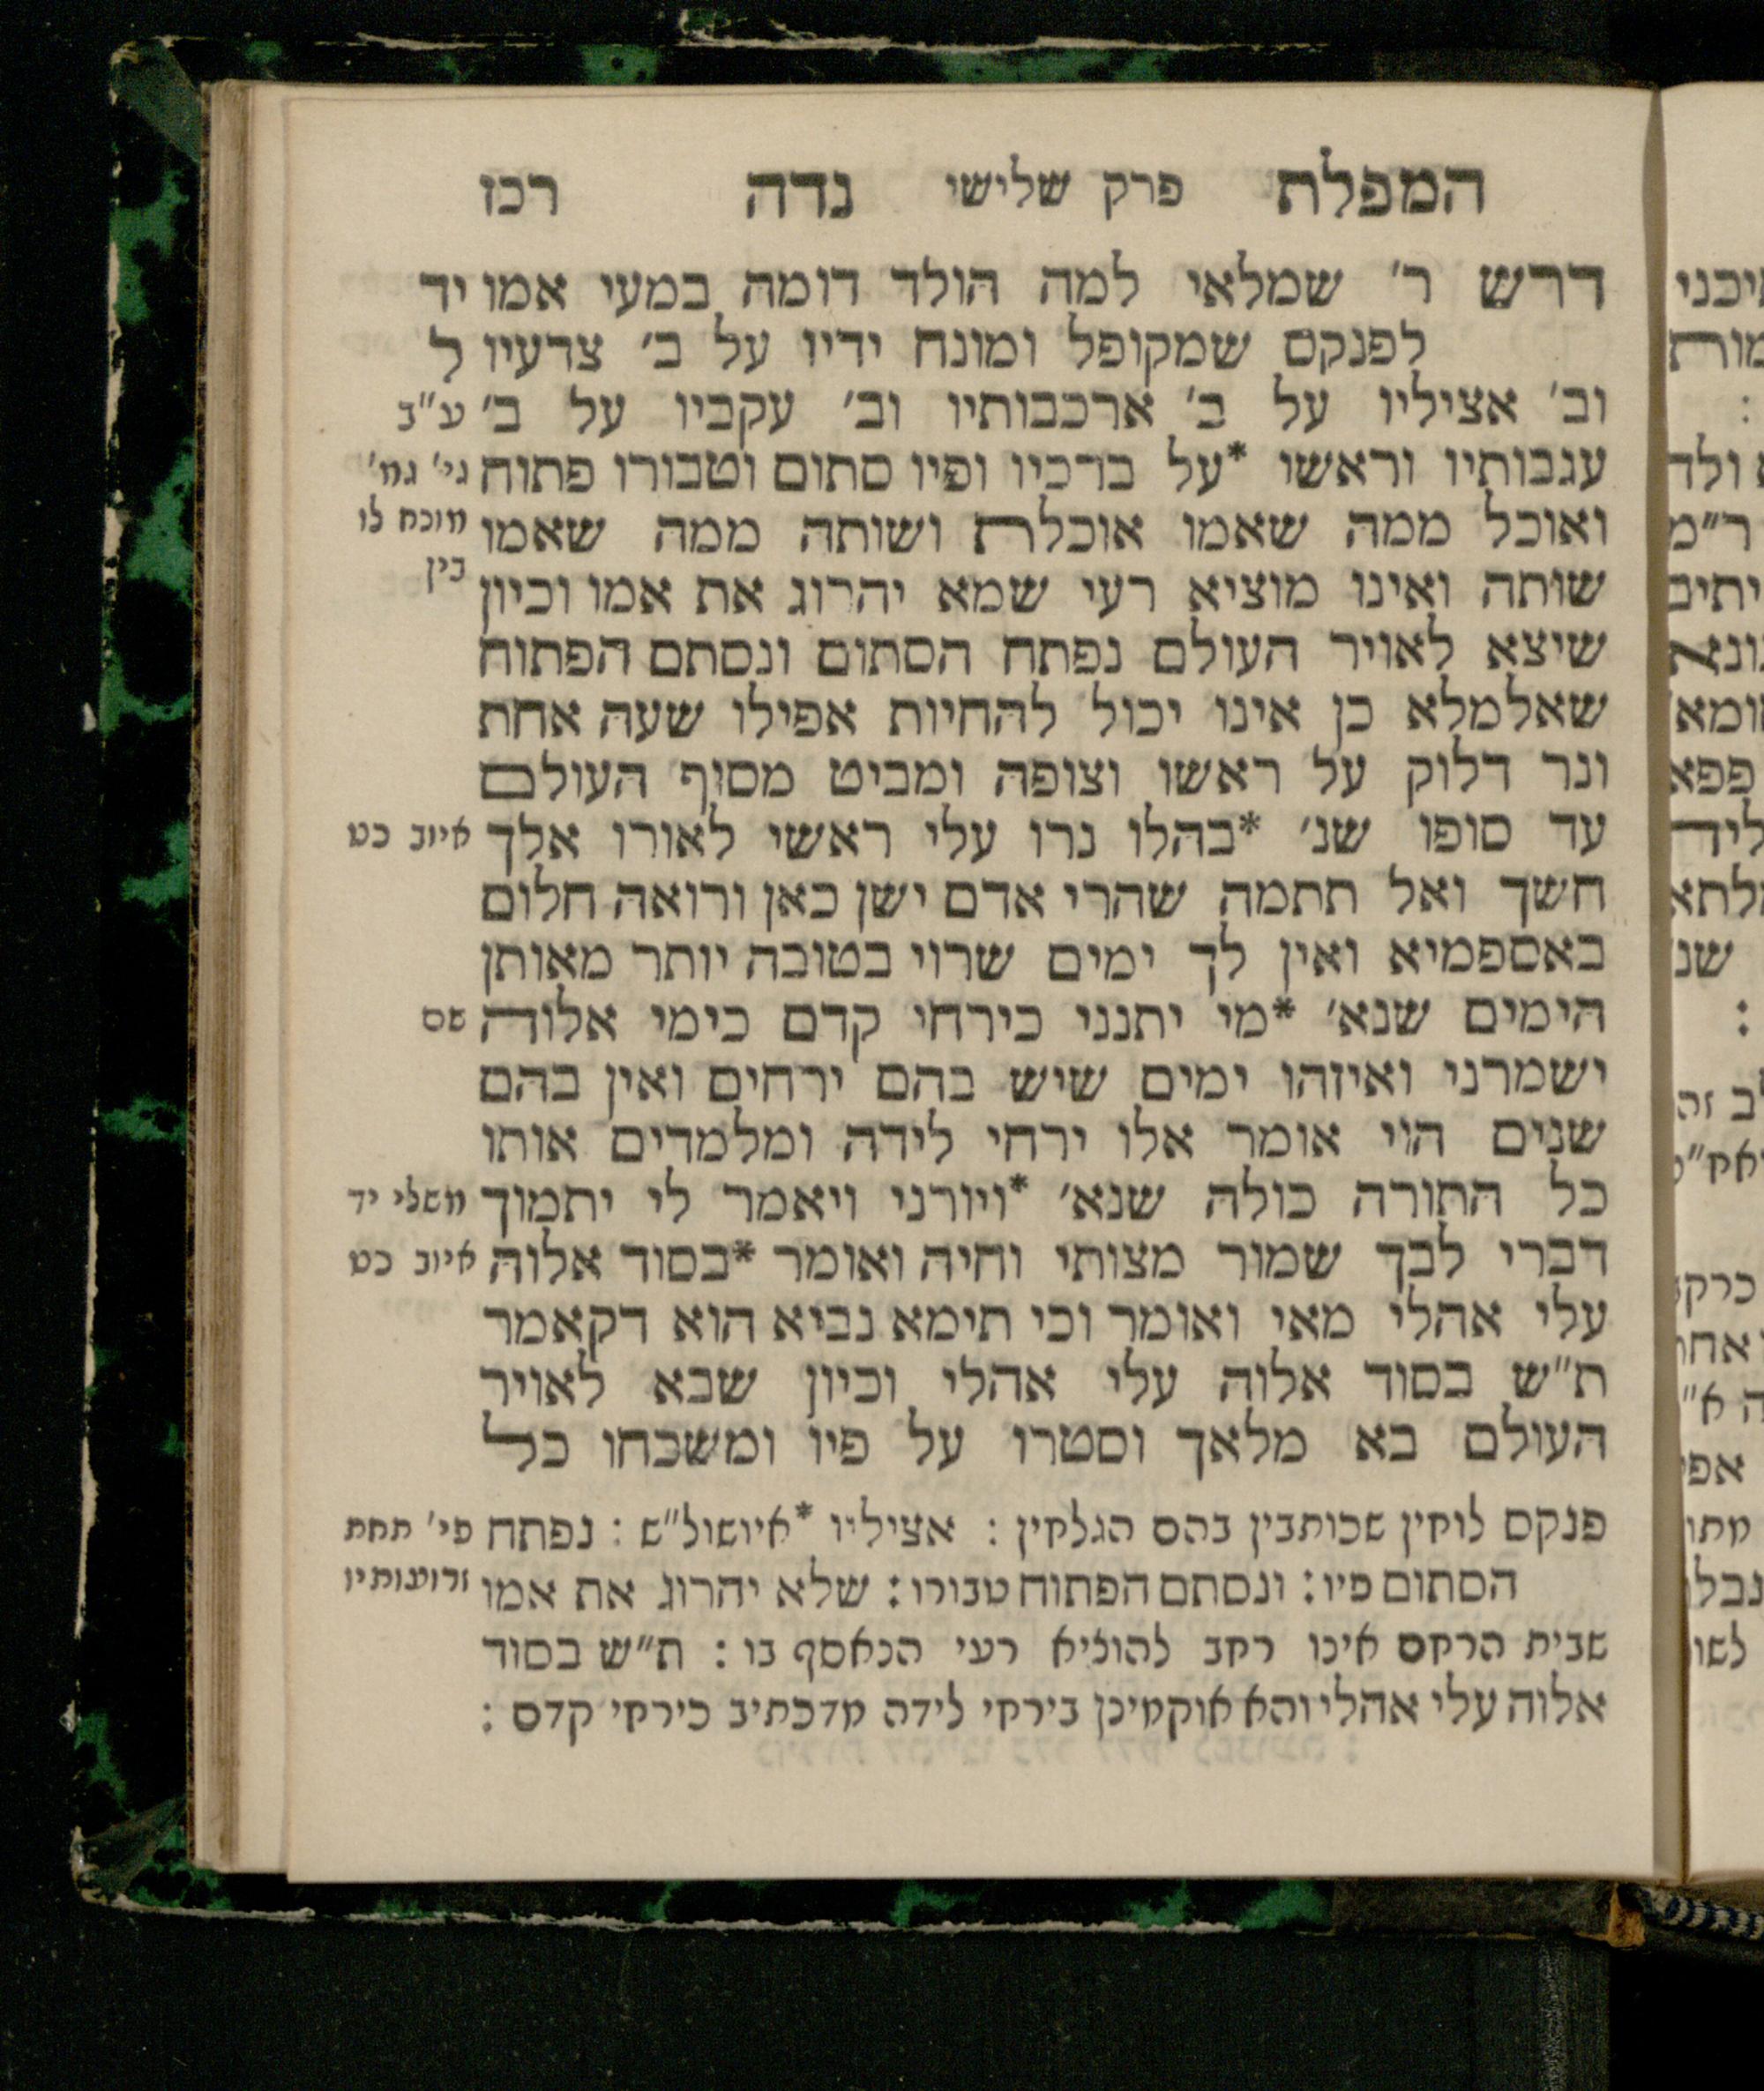 המפלת פרק שלישי נדה רכז
דרש ר׳ שמלאי למה הולד דומה במעי אמו יד
לפנקס שמקופל ומונח ידיו על ב׳ צדעיו ל
וב׳ אציליו על ב׳ ארכבותיו וב׳ עקביו על ב׳ ע״ב
ענבותיו וראשו *על ברכיו ופיו סתום וטבורו פתוח גי׳ גמ׳
ואוכל ממה שאמו אוכלת ושותה ממה שאמו מונח לו
שותה ואינו מוציא רעי שמא יהרוג את אמו וכיון בין
שיצא לאויר העולם נפתח הסתום ונסתם הפתוח
שאלמלא כן אינו יכול להחיות אפילו שעה אחת
ונר דלוק על ראשו וצופה ומביט מסוף העולם
עד סופו שנ׳ *בהלו נרו עלי ראשי לאורו אלך איוב כט
חשך ואל תתמה שהרי אדם ישן כאן ורואה חלום
באספמיא ואין לך ימים שרוי בטובה יותר מאותן
הימים שנא׳ *מי יתנני כירחי קדם כימי אלוה שם
ישמרני ואיזהו ימים שיש בהם ירחים ואין בהם
שנים הוי אומר אלו ירחי לידה ומלמדים אותו
כל התורה כולה שנא׳ *ויורני ויאמר לי יתמוך משלי יד
דברי לבך שמור מצותי וחיה ואומר *בסוד אלוה איוב כט
עלי אהלי מאי ואומר וכי תימא נביא הוא דקאמר
ת״ש בסוד אלוה עלי אהלי וכיון שבא לאויר
העולם בא מלאך וסטרו על פיו ומשכחו כל
פנקס לוחין שכותבין בהם הגלחין : אציליו *איושול״ש : נפתח פי׳ תחת
הסתום פיו : ונסתם הפתוח טבורו : שלא יהרוג את אמו זרועותיו
שבית הרחם אינו רחב להוציא רעי הנאסף בו : ת״ש בסוד
אלוה עלי אהלי והא אוקמינן בירחי לידה מדכתיב כירחי קדם :